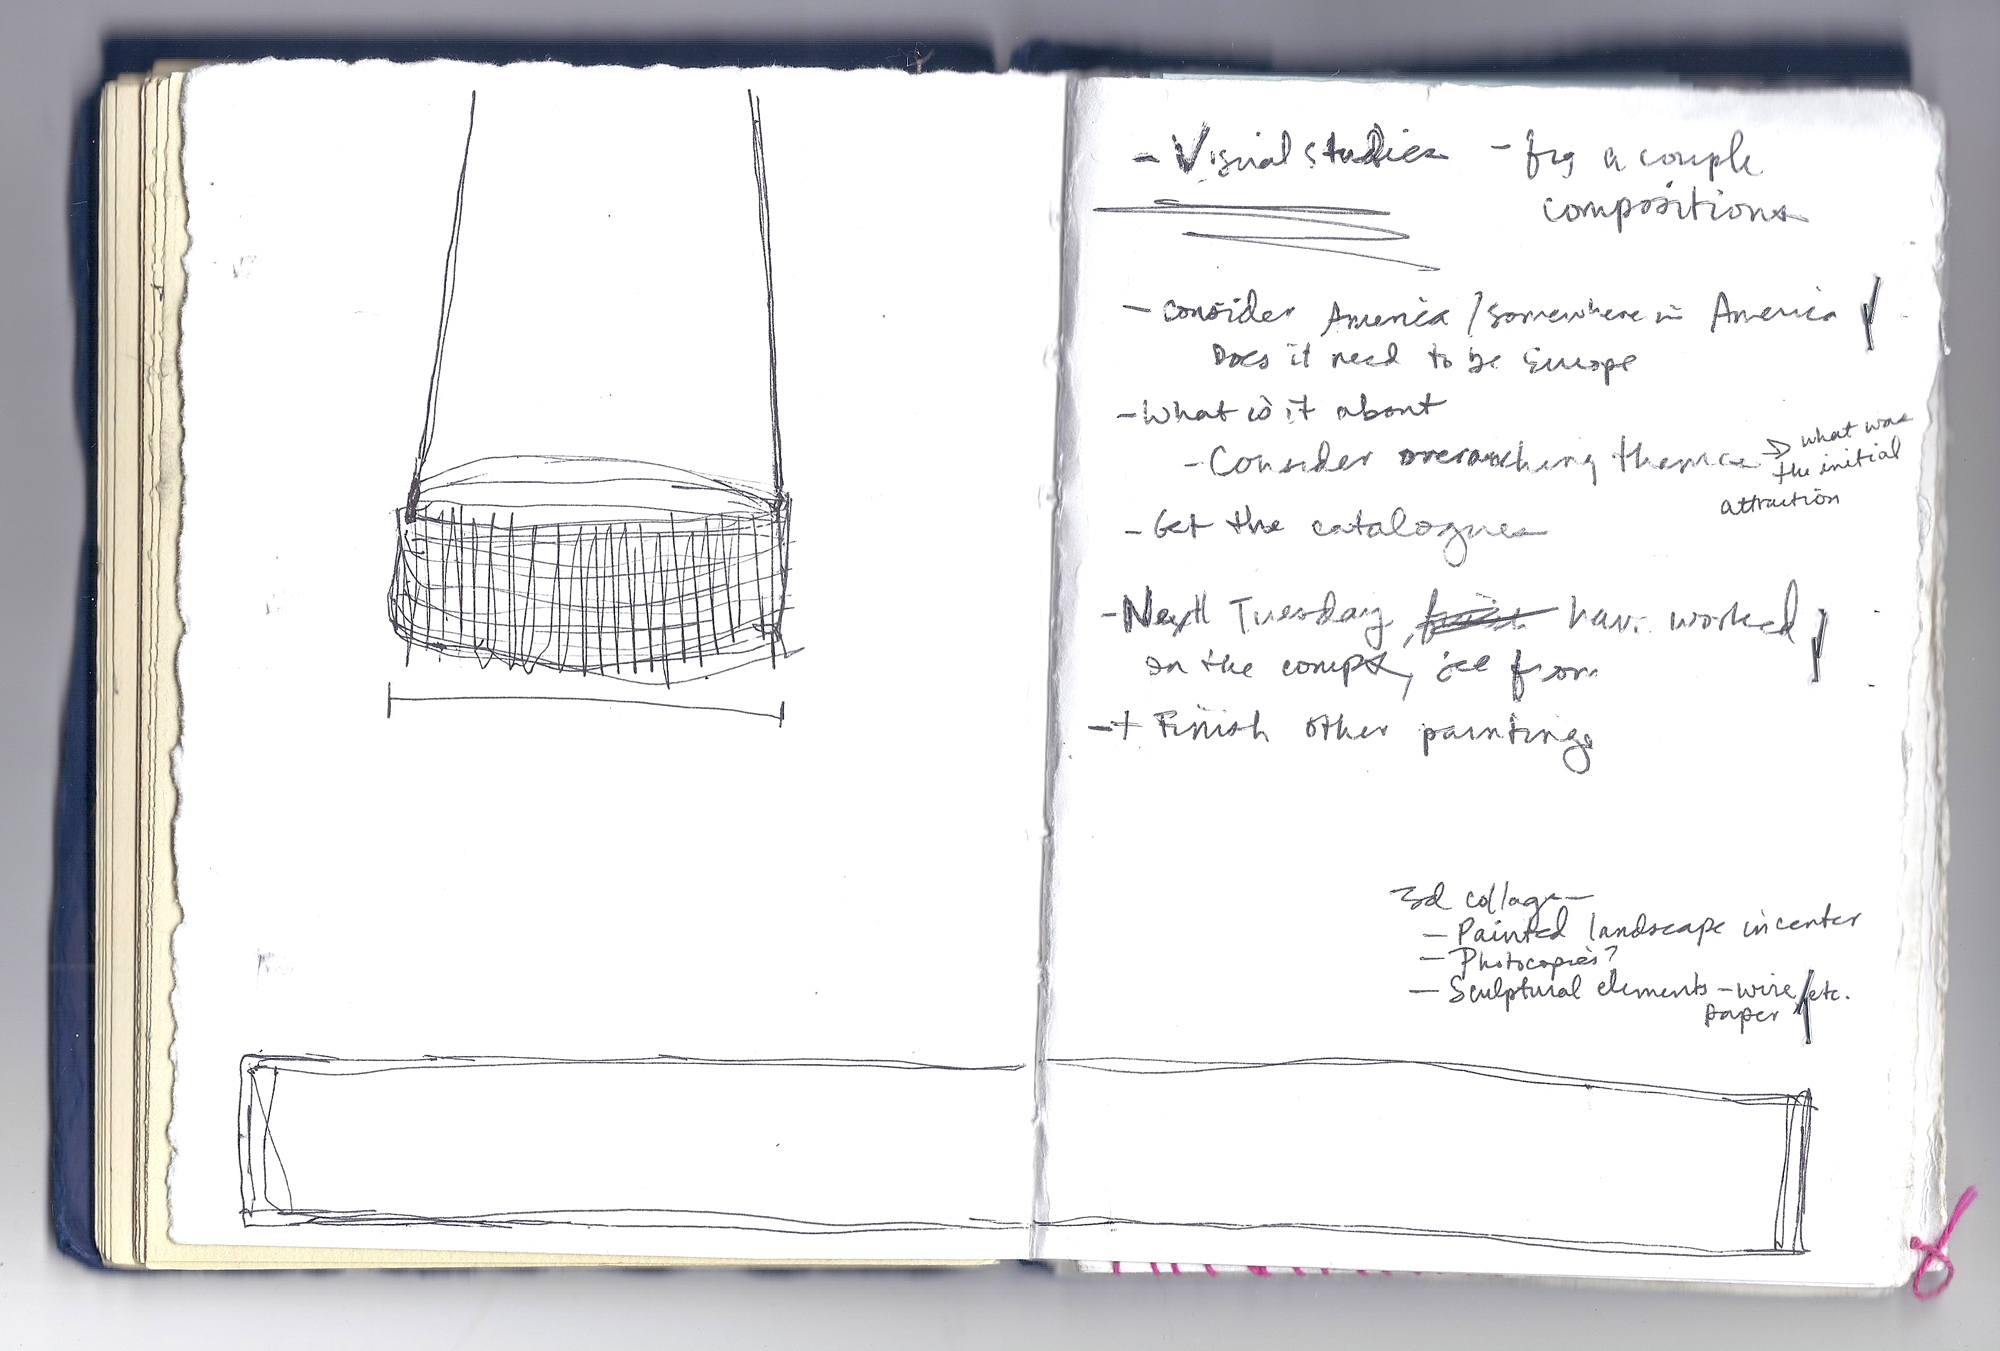 - Visual studies - fig a couple
compositions
- Consider America / somewhere in America
Does it need to be Europe
- What is it about
- Consider overarching themes → what was
the initial
attraction
- Get the catalogues
- Next Tuesday, have worked
on the comps,
- + Finish other paintings
3d collage -
- Painted landscape in center
- Photocopies?
- Sculptural elements - wire, etc.
paper